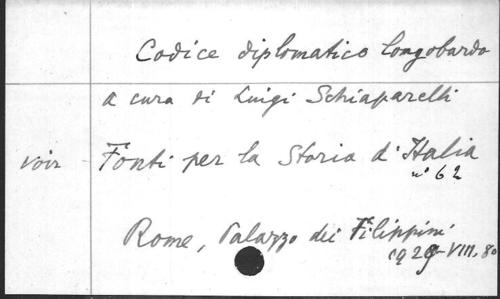 Codice diplomatico longobardo
a cura di Luigi Schiaparelli
voir Fonti per la Storia d'Italia
n° 62
Rome, Palazzo dei Filippini
1929-VIII. 80